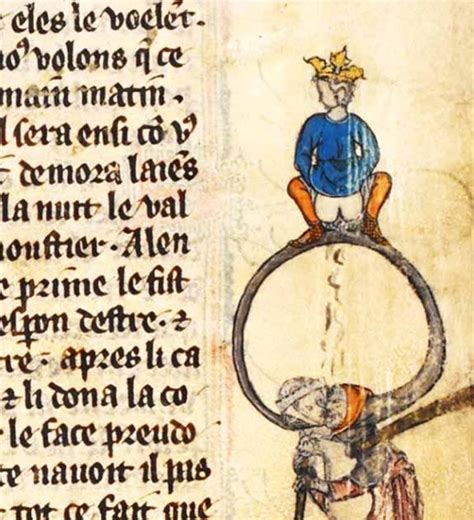 eles le voelēt.
no⁹ volons q̄ ce
main matin.
l sera ensi cō v⁹
demora laiēs
la nuit le val
moustier. Alen
e prime le fist
espron destre. ⁊
tre. apres li ca
⁊ li dona la co
le face preudo
te nauoit il pas
tot ce fait que